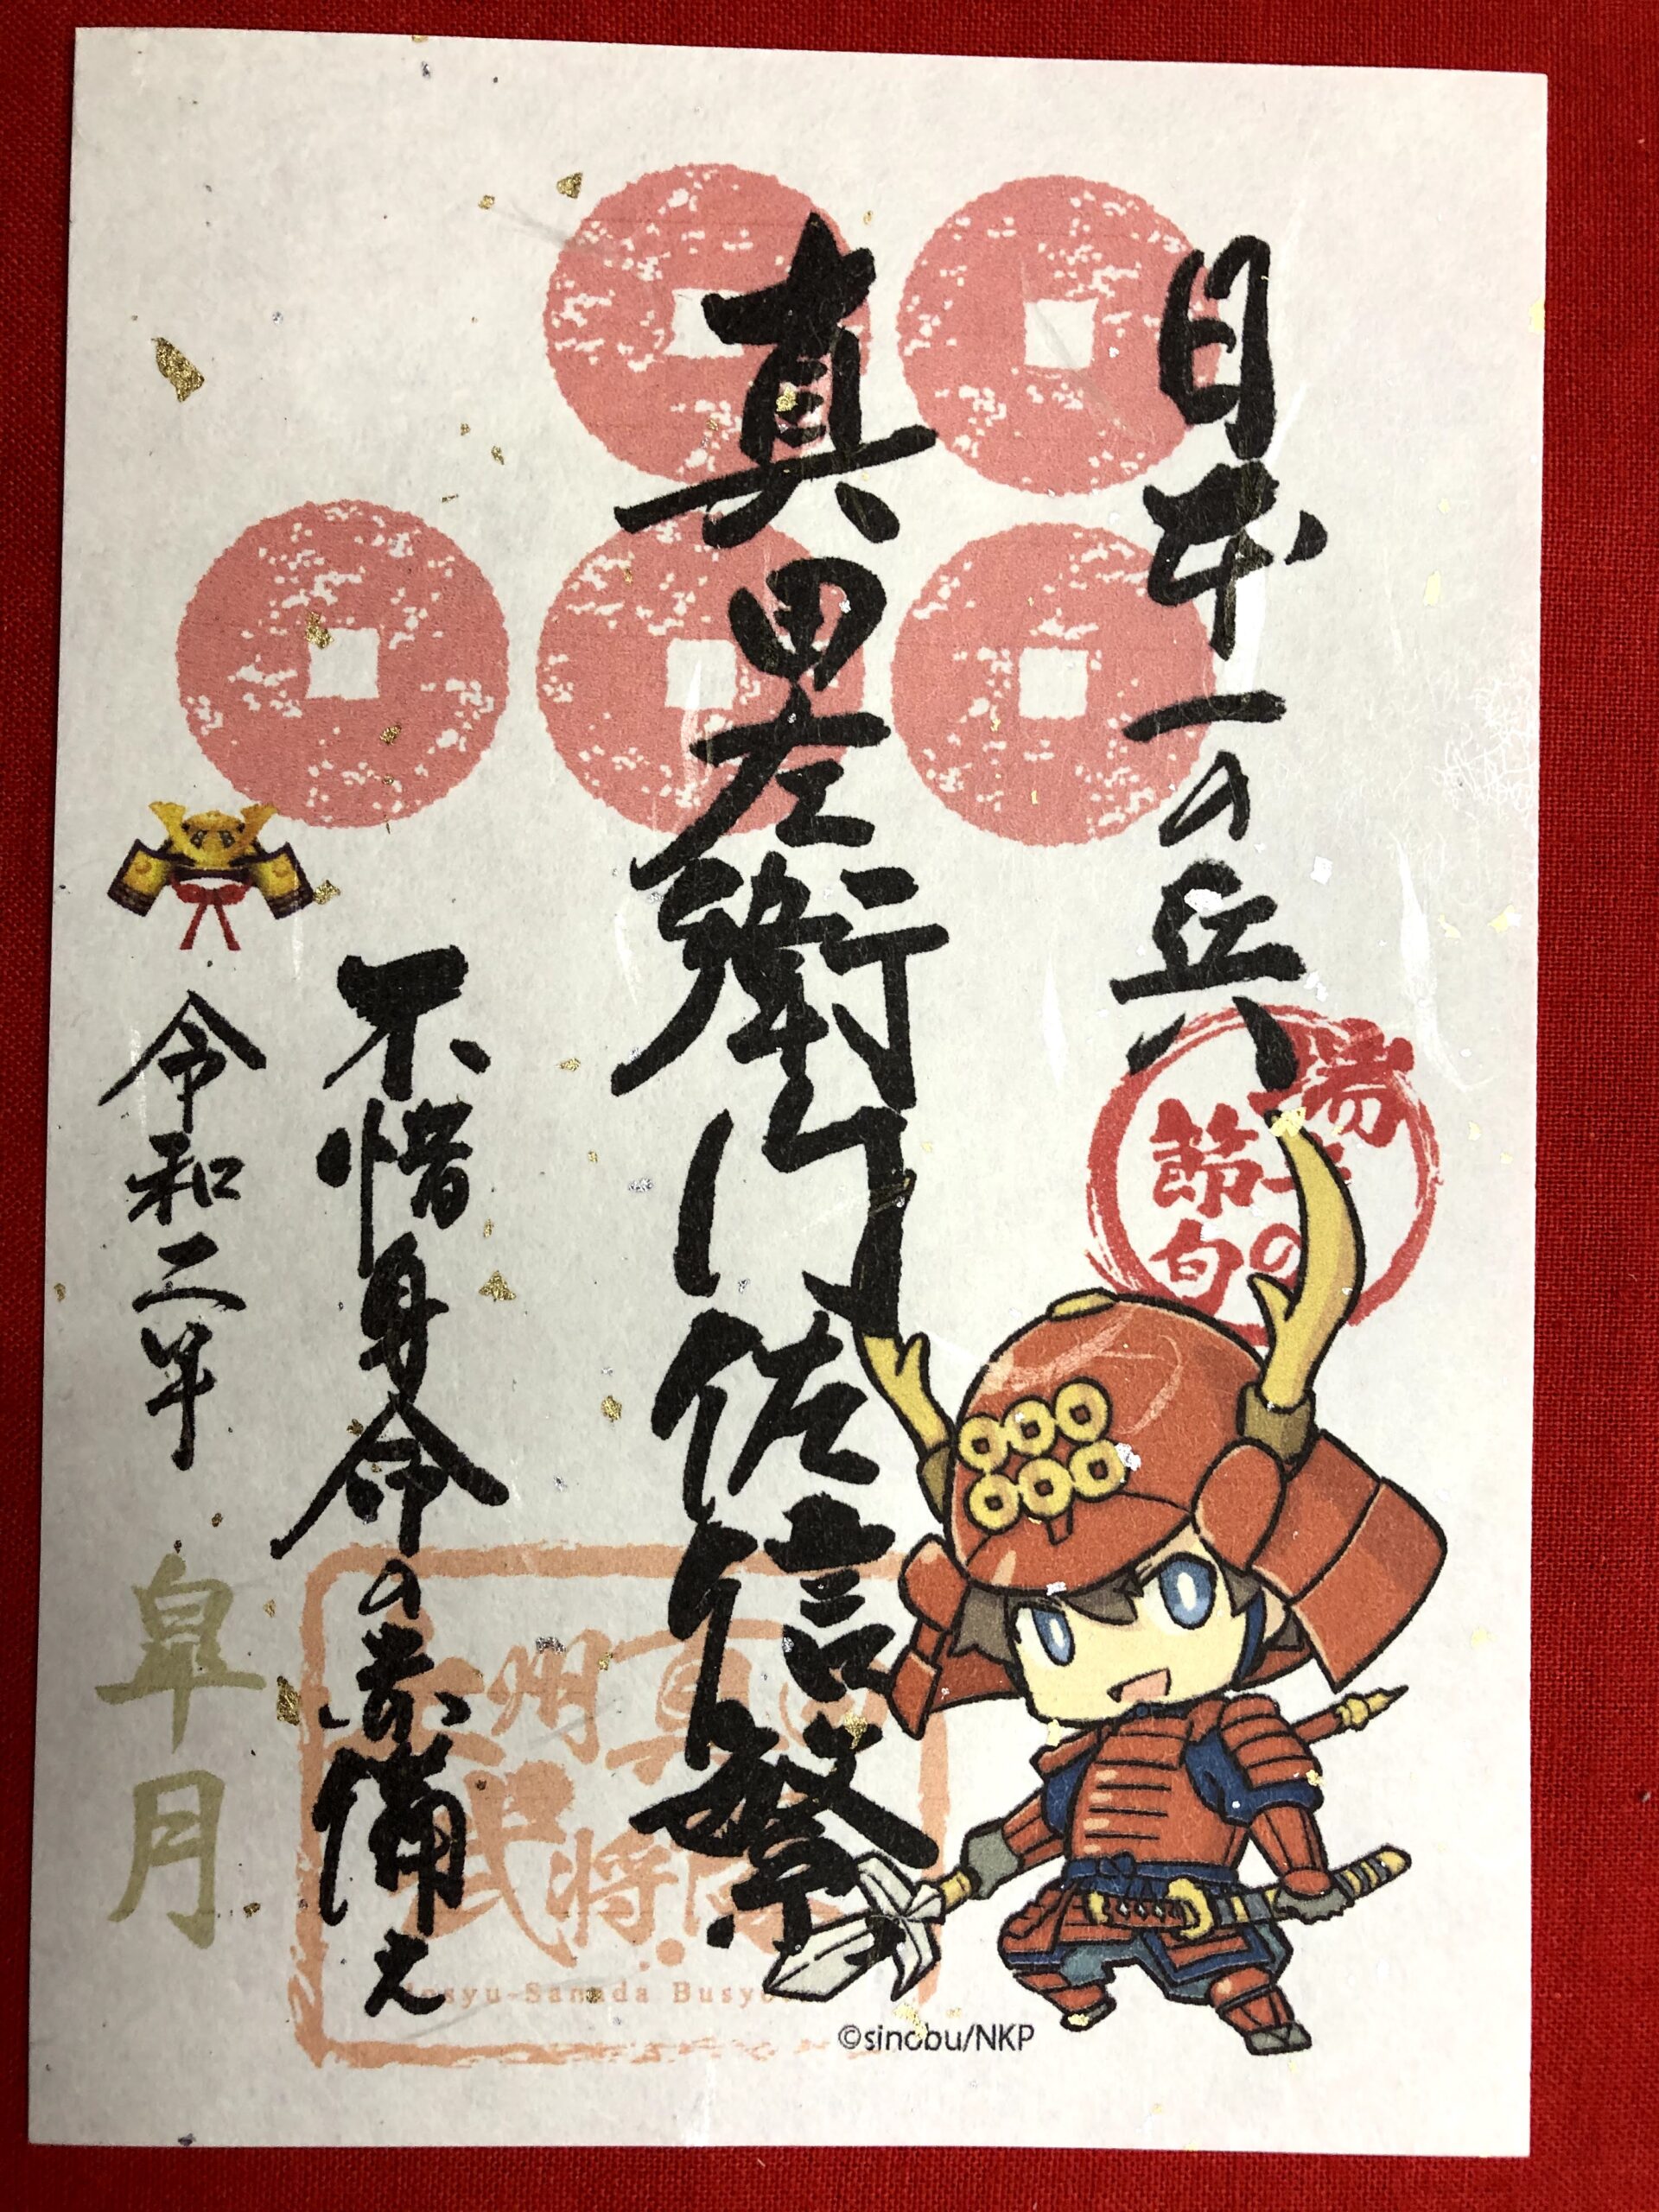 日本一の兵
端午の
節句
真田左衛門佐信繁
不惜身命の赤備え
令和二年
皐月
上州真田
武将隊
Josyu-Sanada Busyotai
©sinobu/NKP